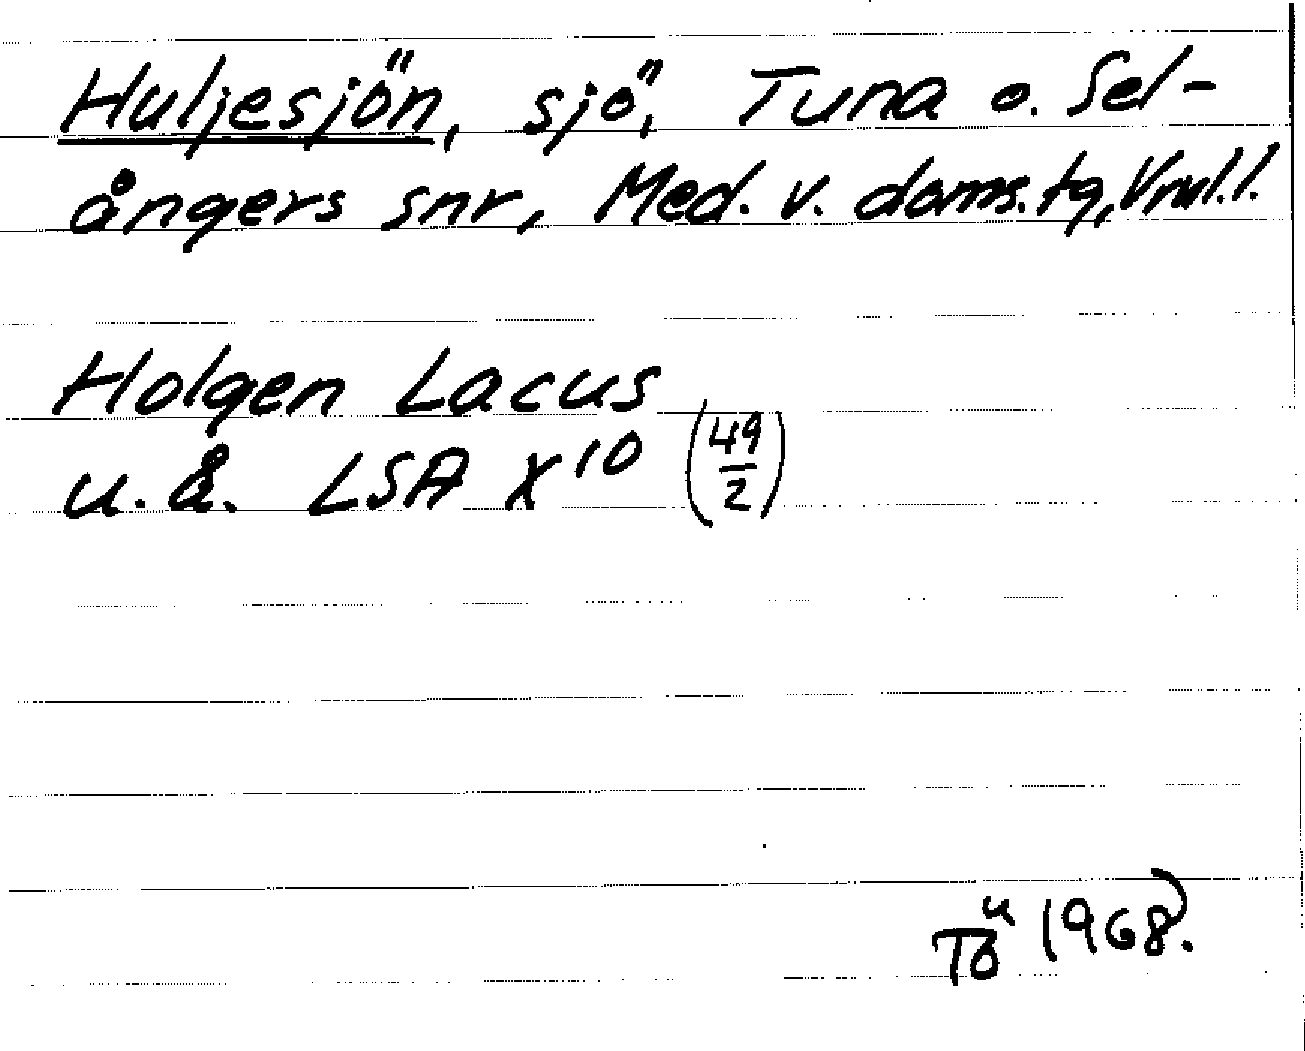 Huljesjön, sjö, Tuna o. Sel-
ångers snr, Med. v. doms.tg, Vnl.l.
Holgen Lacus
u.å. LSA X¹⁰ (49/2)
Tö 1968.